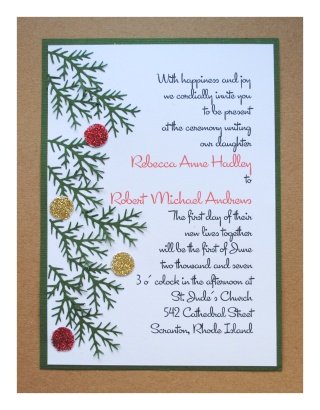 With happiness and joy
we cordially invite you
to be present
at the ceremony uniting
our daughter
Rebecca Anne Hadley
to
Robert Michael Andrews
The first day of their
new lives together
will be the first of June
two thousand and seven
3 o´ clock in the afternoon at
St. Jude´s Church
542 Cathedral Street
Scranton, Rhode Island